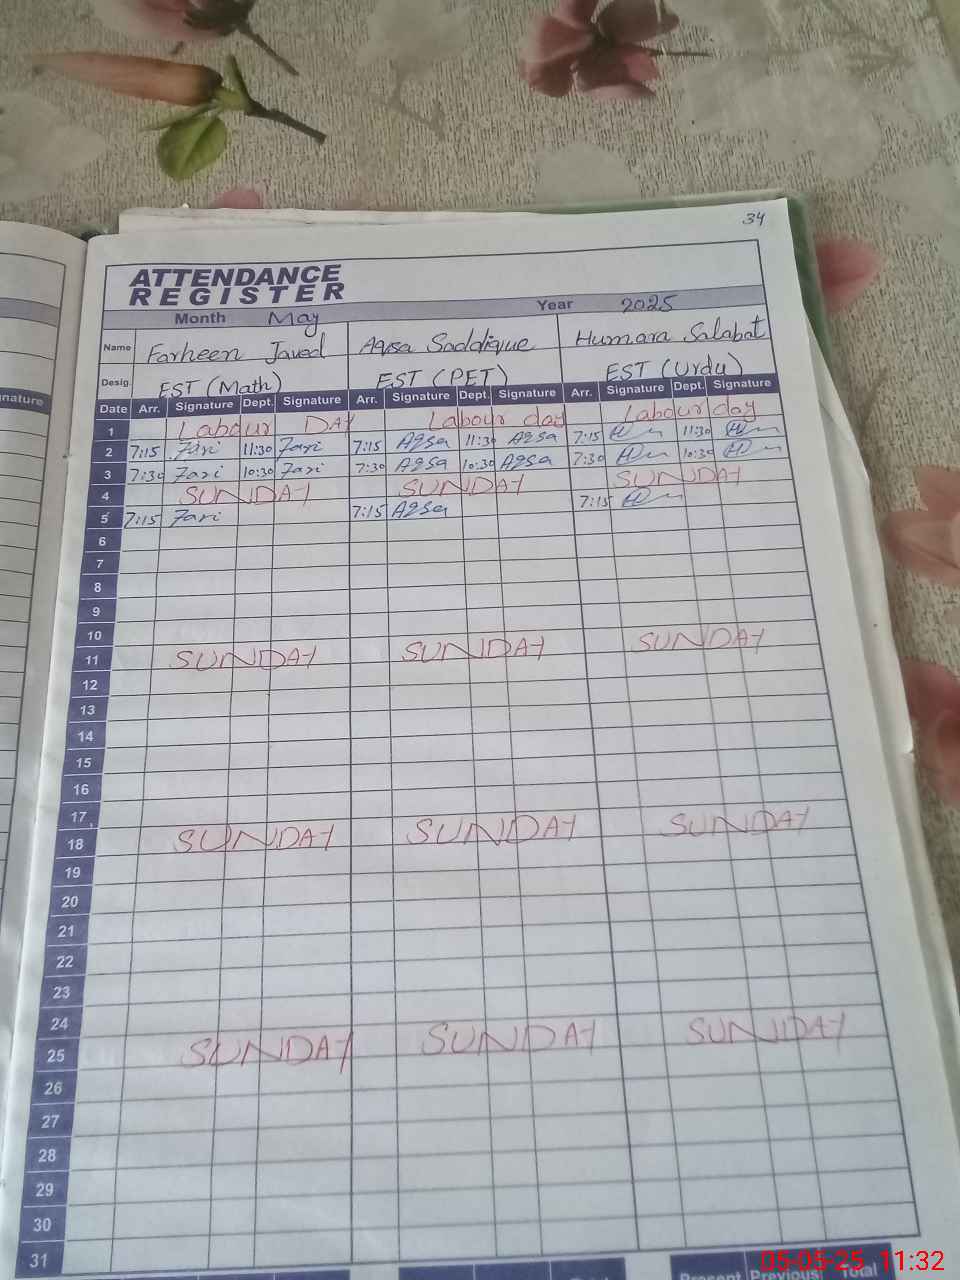 34
ATTENDANCE
REGISTER
Month May Year 2025
Name Farheen Javed Aqsa Saddique Humara Salabat
Desig. EST (Math) EST (PET) EST (Urdu)
nature
Date Arr. Signature Dept. Signature Arr. Signature Dept. Signature Arr. Signature Dept. Signature
1 Labour DAY Labour day Labour day
2 7:15 Fari 11:30 Fari 7:15 Aqsa 11:30 Aqsa 7:15 11:30
3 7:30 Fari 10:30 Fari 7:30 Aqsa 10:30 Aqsa 7:30 10:30
4 SUNDAY SUNDAY SUNDAY
5 7:15 Fari 7:15 Aqsa 7:15
6
7
8
9
10
11 SUNDAY SUNDAY SUNDAY
12
13
14
15
16
17
18 SUNDAY SUNDAY SUNDAY
19
20
21
22
23
24
25 SUNDAY SUNDAY SUNDAY
26
27
28
29
30
31
Present Previous Total
05-05-25 11:32